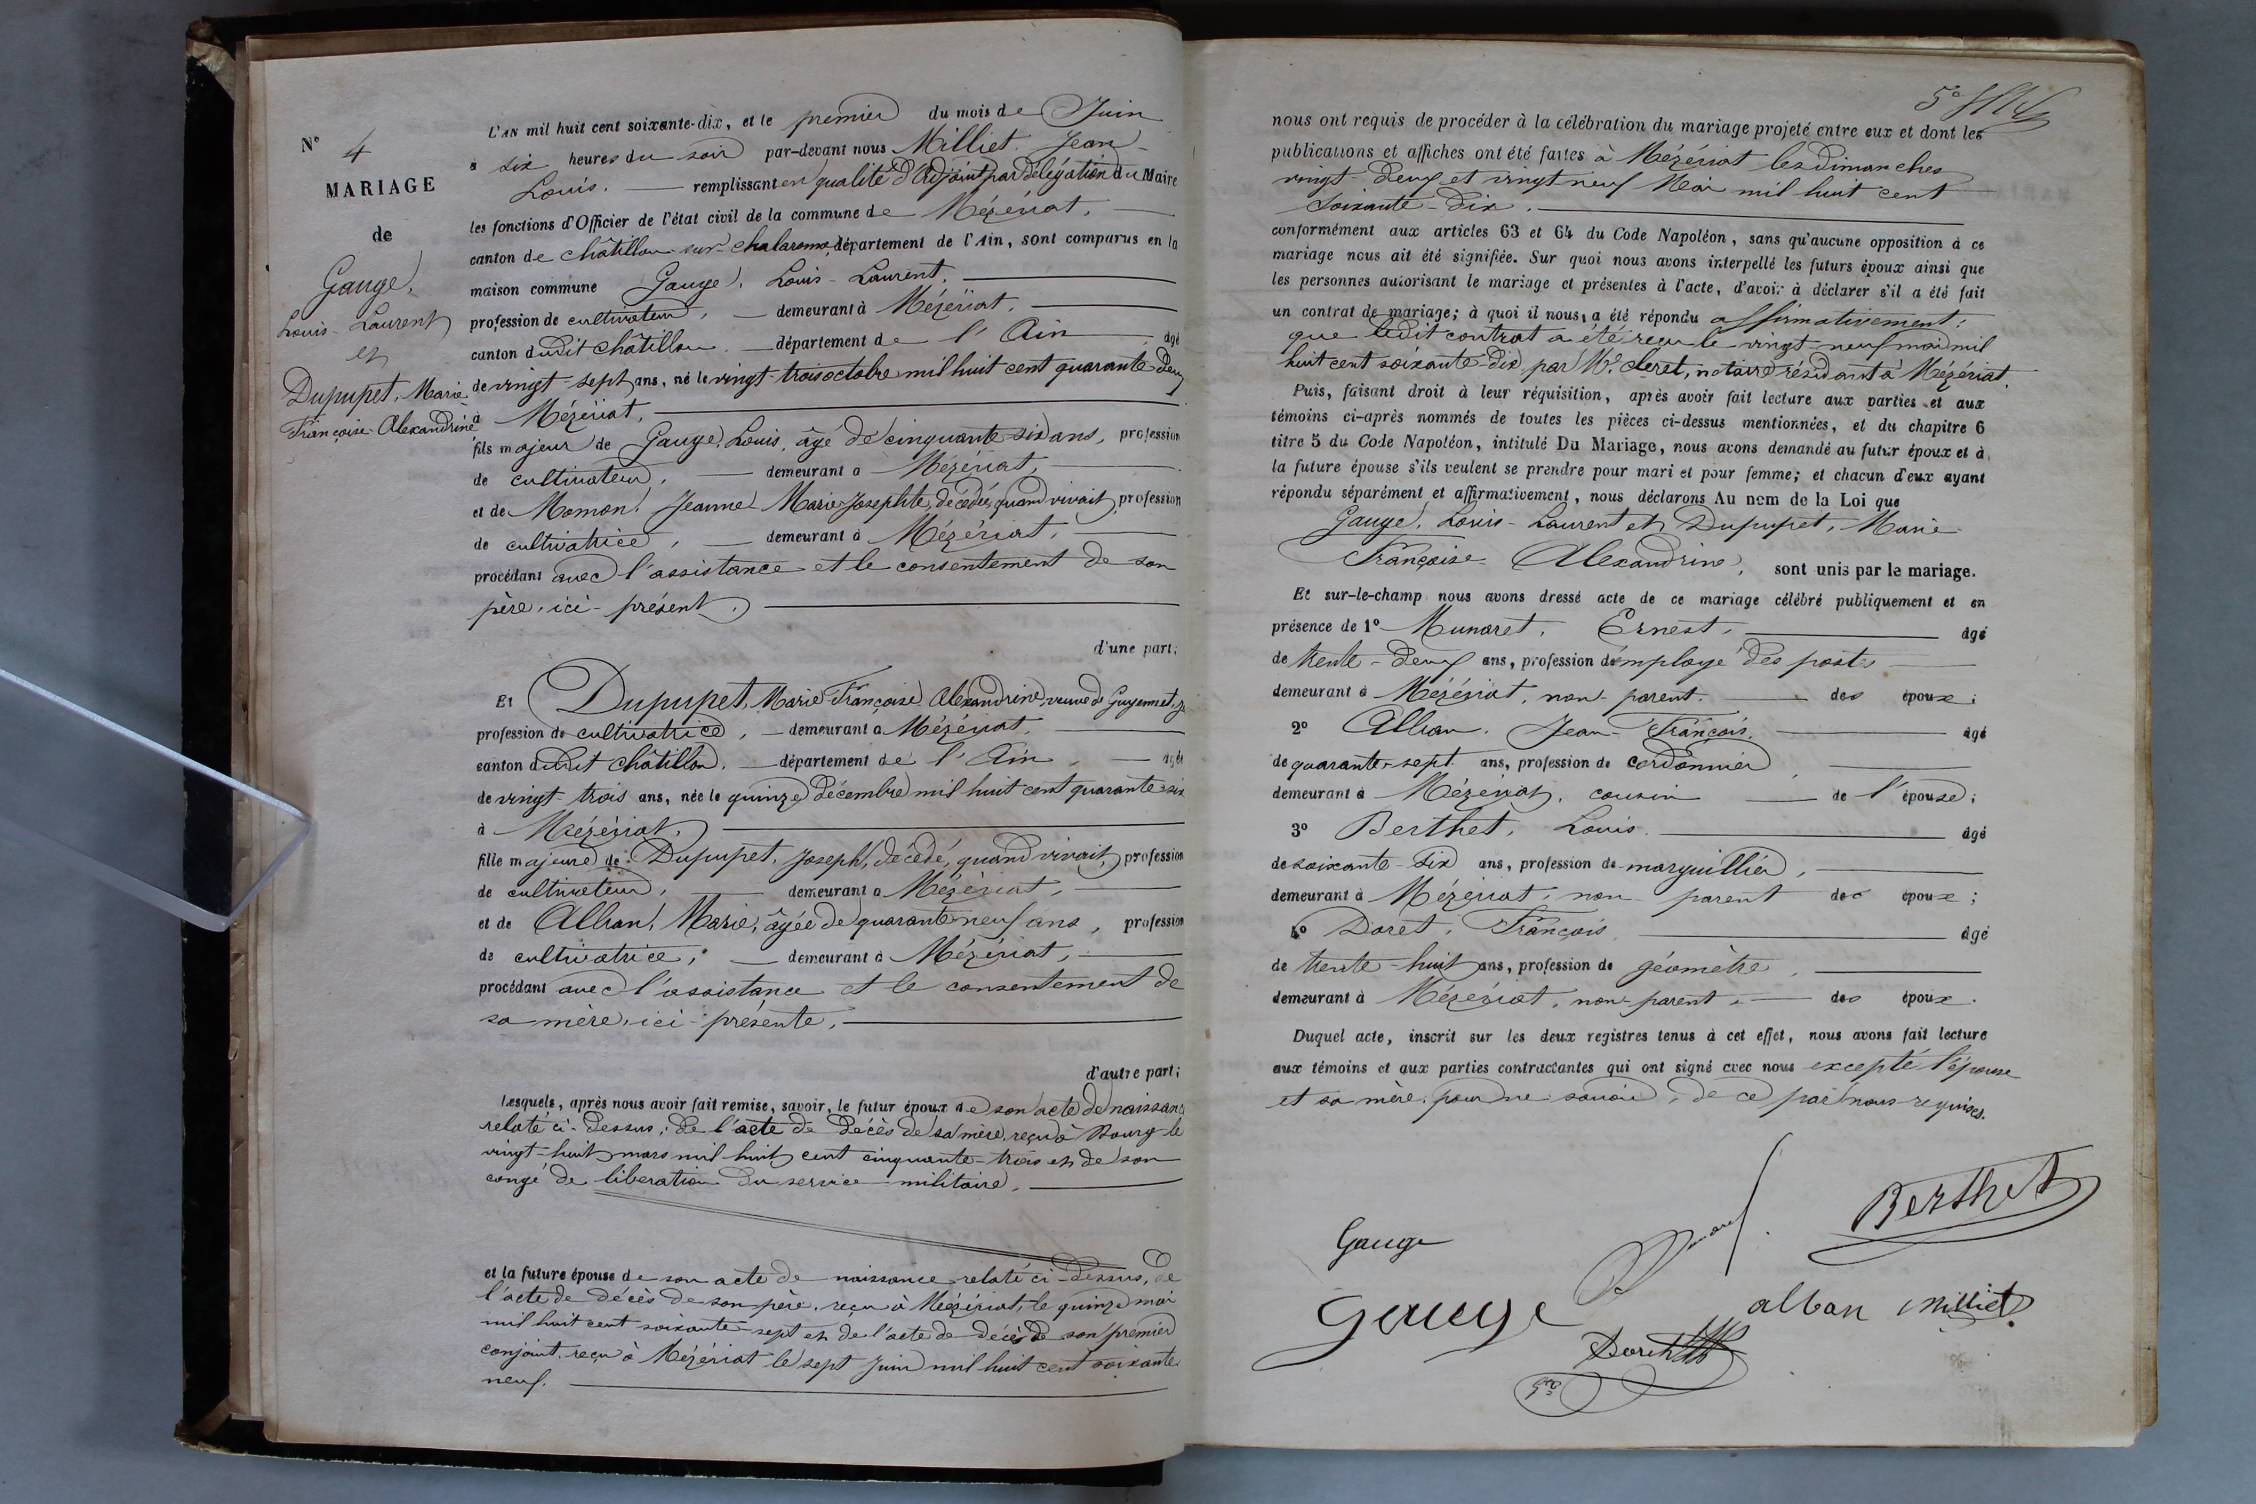 N° 4
MARIAGE
de
Gauge,
Louis-Laurent
et
Dupupet, Marie
Françoise Alexandrine
L'AN mil huit cent soixante-dix, et le premier du mois de Juin
à six heures du soir par-devant nous Milliet Jean-
Louis. remplissant en qualité d'adjoint par délégation du Maire
les fonctions d'Officier de l'état civil de la commune de Mézériat,
canton de châtillon sur chalaronne, département de l'Ain, sont comparus en la
maison commune Gauge, Louis-Laurent,
profession de cultivateur, demeurant à Mézériat,
canton dudit châtillon. département de l'Ain âgé
de vingt-sept ans, né le vingt-trois octobre mil huit cent quarante-deux
à Mézériat,
fils majeur de Gauge, Louis, âgé de cinquante six ans, profession
de cultivateur, demeurant à Mézériat,
et de Momon, Jeanne Marie Josephte, décédée, quand vivait, profession
de cultivatrice, demeurant à Mézériat,
procédant avec l'assistance et le consentement de son
père, ici-présent,
d'une part;
Et Dupupet, Marie Françoise Alexandrine, veuve de Guyennet,
profession de cultivatrice, demeurant à Mézériat,
canton dudit châtillon. département de l'Ain, âgée
de vingt-trois ans, née le quinze décembre mil huit cent quarante-six
à Mézériat,
fille majeure de Dupupet, Joseph, décédé, quand vivait, profession
de cultivateur, demeurant à Mézériat,
et de Alban, Marie, âgée de quarante neuf ans, profession
de cultivatrice, demeurant à Mézériat,
procédant avec l'assistance et le consentement de
sa mère, ici présente,
d'autre part;
Lesquels, après nous avoir fait remise, savoir, le futur époux de son acte de naissance
relaté ci-dessus, de l'acte de décès de sa mère, reçu à Bourg le
vingt-huit mars mil huit cent cinquante-trois et de son
congé de libération du service militaire.
et la future épouse de son acte de naissance relaté ci-dessus, de
l'acte de décès de son père, reçu à Mézériat, le quinze mai
mil huit cent soixante-sept et de l'acte de décès de son premier
conjoint, reçu à Mézériat le sept Juin mil huit cent soixante
neuf.
nous ont requis de procéder à la célébration du mariage projeté entre eux et dont les
publications et affiches ont été faites à Mézériat les dimanches
vingt-deux et vingt neuf Mai mil huit cent
soixante-dix.
conformément aux articles 63 et 64 du Code Napoléon, sans qu'aucune opposition à ce
mariage nous ait été signifiée. Sur quoi nous avons interpellé les futurs époux ainsi que
les personnes autorisant le mariage et présentes à l'acte, d'avoir à déclarer s'il a été fait
un contrat de mariage; à quoi il nous a été répondu affirmativement:
que ledit contrat a été reçu le vingt-neuf mai mil
huit cent soixante-dix par Me cleret, notaire résidant à Mézériat.
Puis, faisant droit à leur réquisition, après avoir fait lecture aux parties et aux
témoins ci-après nommés de toutes les pièces ci-dessus mentionnées, et du chapitre 6
titre 5 du Code Napoléon, intitulé Du Mariage, nous avons demandé au futur époux et à
la future épouse s'ils veulent se prendre pour mari et pour femme; et chacun d'eux ayant
répondu séparément et affirmativement, nous déclarons Au nom de la Loi que
Gauge, Louis-Laurent et Dupupet, Marie
Françoise Alexandrine, sont unis par le mariage.
Et sur-le-champ nous avons dressé acte de ce mariage célébré publiquement et en
présence de 1° Munaret, Ernest, âgé
de trente-deux ans, profession d'employé des postes
demeurant à Mézériat, non parent. des époux;
2° Alban, Jean-François, âgé
de quarante-sept ans, profession de cordonnier,
demeurant à Mézériat, cousin de l'épouse;
3° Berthet, Louis. âgé
de soixante-dix ans, profession de marguillier,
demeurant à Mézériat, non parent des époux;
4° Doret, François. âgé
de trente-huit ans, profession de géomètre,
demeurant à Mézériat, non parent, des époux.
Duquel acte, inscrit sur les deux registres tenus à cet effet, nous avons fait lecture
aux témoins et aux parties contractantes qui ont signé avec nous excepté l'épouse
et sa mère pour ne savoir, de ce par nous requises.
Berthet
Gauge
Gauge
alban Milliet
Doret